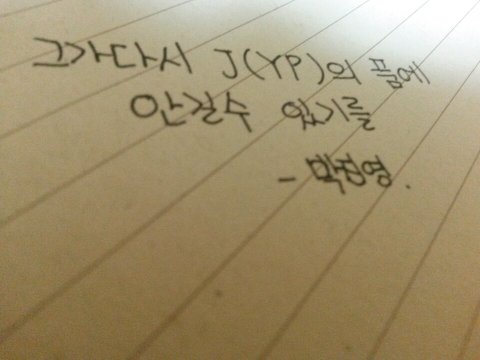 그가다시 J(YP)의 품에
안길수 있기를
- 박진영.